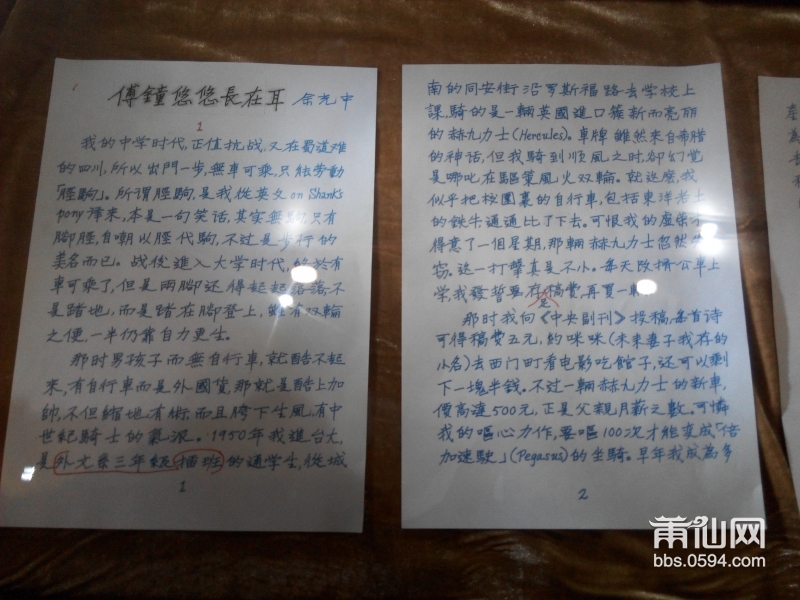 傅鐘悠悠長在耳 余光中
1
我的中学时代,正值抗战,又在蜀道难
的四川,所以出門一步,無車可乘,只能劳動
「脛駒」。所謂脛駒,是我從英文on Shank's
pony譯來,本是一句笑话,其實無駒,只有
腳脛,自嘲以脛代駒,不过是步行的
美名而已。战後進入大学时代,終於有
車可乘了,但是兩腳还得起起落落,不
是踏地,而是踏在腳登上,雖有双輪
之便,一半仍靠自力更生。
那时男孩子而無自行車,就酷不起
來,有自行車而是外國貨,那就是酷上加
帥,不但縮地有術而且胯下生風,有中
世紀騎士的氣派。1950年我進台大,
是外文系三年級插班的通学生,從城
1
南的同安街沿罗斯福路去学校上
課,騎的是一輛英國進口簇新而亮丽
的赫九力士(Hercules)。車牌雖然來自希腊
的神话,但我騎到順風之时,卻幻觉
是哪吒在驅策風火双輪。就这麼,我
似乎把校園裏的自行車,包括東洋老土
的鉄牛通通比了下去。可恨我的虛荣
得意了一個星期,那輛赫九力士忽然
窃。这一打擊真是不小。每天改擠公車上
学,我發誓要存稿费,再買一
那时我向《中央副刊》投稿,每首诗
可得稿费五元,约咪咪(未來妻子我存的
小名)去西门町看电影吃館子,还可以剩
下一塊半錢。不过一輛赫九力士的新車,
價高達500元,正是父親月薪之数。可憐
我的嘔心力作,要嘔100次才能变成「倍
加速駛」(Pegasus)的坐騎。早年我成為多
2
莆仙网
bbs.0594.com